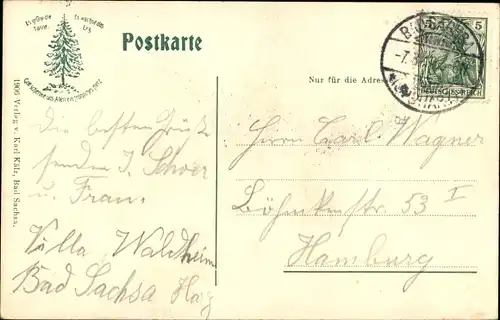 Es grüne die Tanne,
Es wachse das Erz
Gott schenke uns Allen ein fröhliches Herz
Postkarte
BAD SACHSA
5
DEUTSCHES REICH
Nur für die Adresse
1906 Verlag v. Karl Külz, Bad Sachsa.
Die besten Grüße
senden J.
u. Frau.
Villa Waldheim
Bad Sachsa Harz
Herrn Carl Wagner
53 I
Hamburg